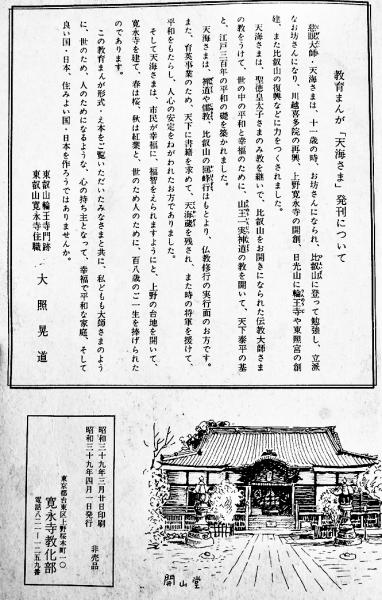 教育まんが「天海さま」発刊について
慈眼大師・天海さまは、十一歳の時、お坊さんになられ、比叡山に登って勉強し、立派
なお坊さんになり、川越喜多院の再興、上野寛永寺の開創、日光山に輪王寺や東照宮の創
建、また比叡山の復興などに力をつくされました。
天海さまは、聖徳皇太子さまのみ教を継いで、比叡山をお開きになられた伝教大師さま
の教をうけて、世の中の平和と幸福のために、山王一実神道の教を開いて、天下泰平の基
と、江戸三百年の平和の礎を築かれました。
天海さまは、禅道や儒教、比叡山の回峰行はもとより、仏教修行の実行面のお方です。
また、育英事業のため、天下に書籍を求めて、天海蔵を残され、また時の将軍を援けて、
平和をもたらし、人心の安定をねがわれたお方でありました。
そして天海さまは、市民が幸福に、福智をえられますようにと、上野の台地を開いて、
寛永寺を建て、春は桜、秋は紅葉と、世のため人のために、百八歳のご一生を捧げられた
のであります。
この教育まんが形式・え本をご覧いただいたみなさまと共に、私どもも大師さまのよう
に、世のため、人のためになるような、心の持ち主となって、幸福で平和な家庭、そして
良い国・日本、住みよい国・日本を作ろうではありませんか。
東叡山輪王寺門跡
東叡山寛永寺住職
大照晃道
開山堂
昭和三十九年三月廿日印刷
昭和三十九年四月一日発行
非売品
東京都台東区上野桜木町一〇
寛永寺教化部
電話八二一―一二五九番